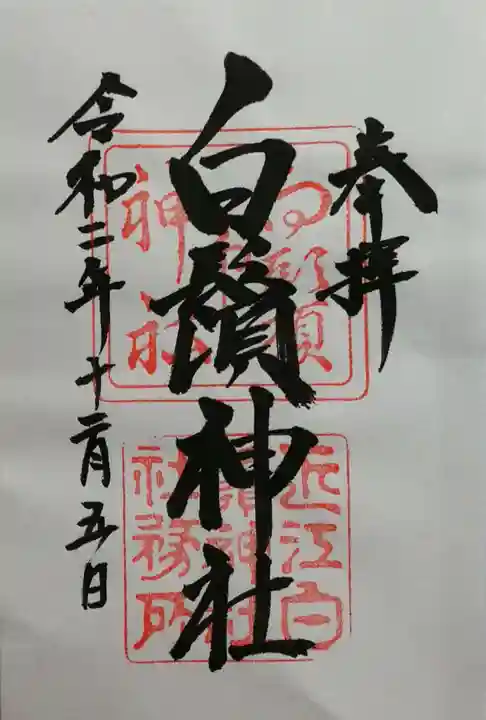 奉拝
白鬚神社
令和二年十二月五日
近江白
鬚神社
社務所